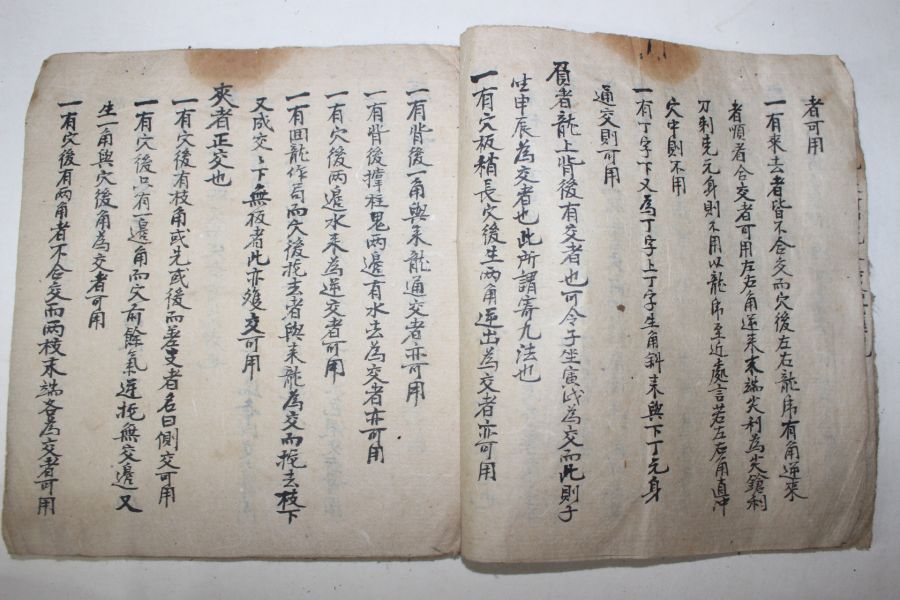 者可用
一有來去者皆不合交而穴後左右龍席有角逆來
者順者合交者可用左右角逆來末端尖利為尖鎗利
刀刺克元身則不用以龍席至近處言若左右角直冲
穴中則不用
一有丁字下又為丁字上丁字生角斜來與下丁元身
通交則可用
負者龍上背後有交者也可令子坐寅戌為交而此則子
坐申辰為交者也此所謂寄九法也
一有穴板稍長穴後生兩角逆出為交者亦可用
一有背後一角與來龍通交者亦可用
一有背後撑柱鬼兩邊有水去為交者亦可用
一有穴後兩邊水來為逆交者可用
一有回龍作局而穴後拖去者與來龍為交而拖去枝下
又成交之下無板者此亦雙交可用
夾者正交也
一有穴後有枝角或先或後而差史者名曰側交可用
一有穴後只有一邊角而穴前餘氣逆拖無交邊又
生一角與穴後角為交者可用
一有穴後有兩角者不合交而兩枝末端各為交者可用